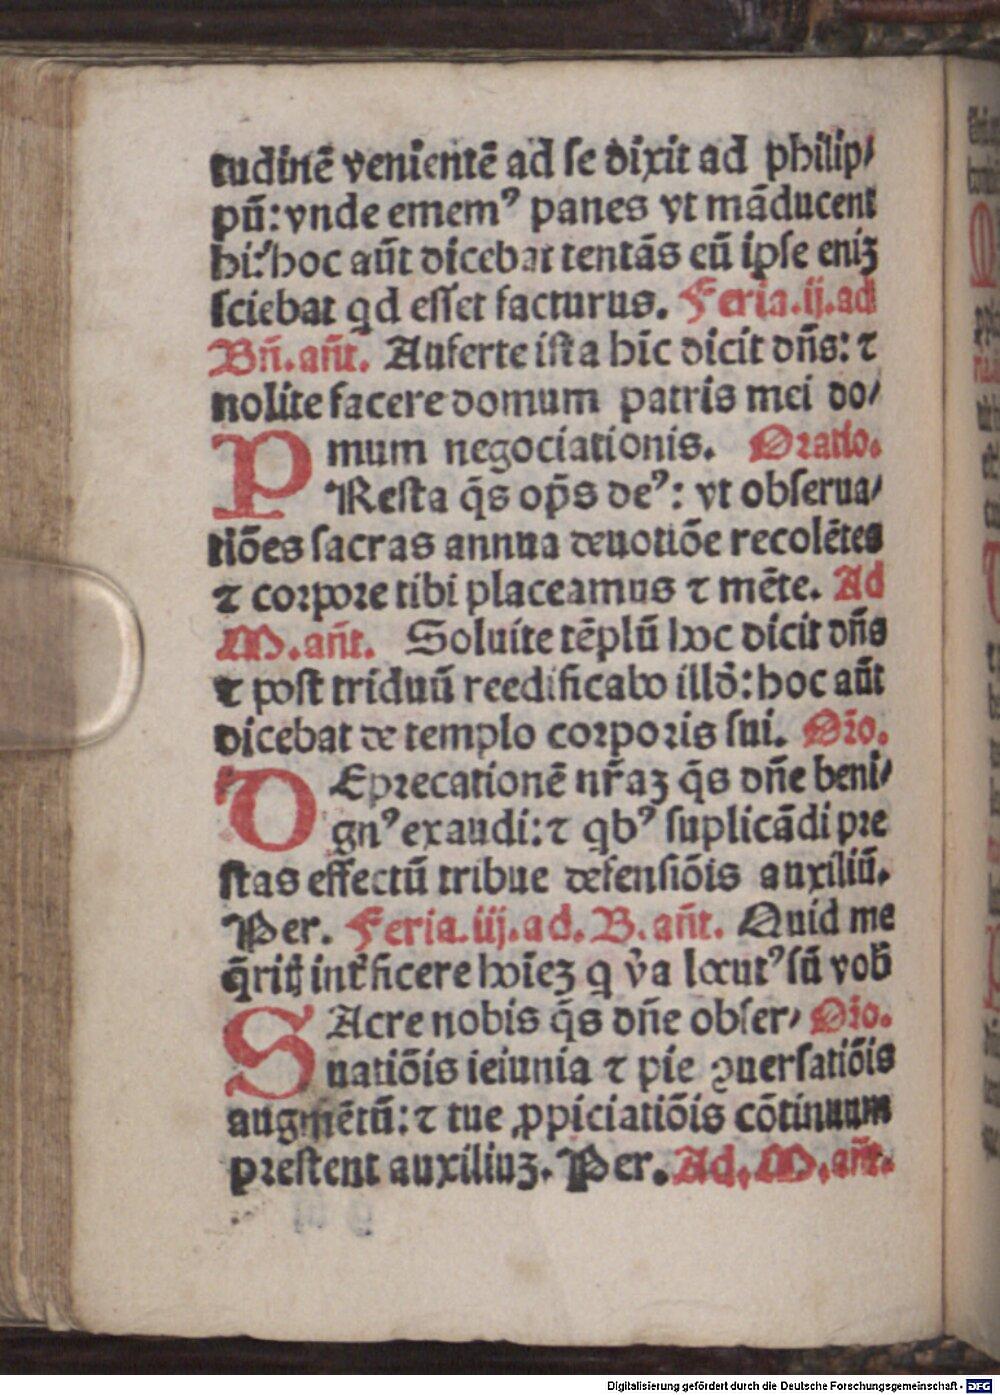 tudinē venientē ad se dixit ad philip/
pū: vnde ememꝰ panes vt māducent
hi: hoc aūt dicebat tentās eū ipse eniꝫ
sciebat qd esset facturus. Feria.ij.ad
Bn̄.an̄t. Auferte ista hic dicit dn̄s: ⁊
nolite facere domum patris mei do/
mum negociationis. Oratio.
PResta q̄s op̄s deꝰ: vt obserua/
tiōes sacras annua deuotiōe recolētes
⁊ corpore tibi placeamus ⁊ mēte. Ad
M.an̄t. Soluite tēplū hoc dicit dn̄s
⁊ post triduū reedificabo illd̓: hoc aūt
dicebat de templo corporis sui. Or̄o.
DEprecationē nr̄aꝫ q̄s dn̄e beni/
gnꝰ exaudi: ⁊ qbꝰ suplicādi pre
stas effectū tribue defensiōis auxiliū.
Per. Feria.iij.ad.B.an̄t. Quid me
q̄rit̄ int̄ficere hoīeꝫ q v̄a locutꝰ sū vob̄
SAcre nobis q̄s dn̄e obser/ Or̄o.
uatiōis ieiunia ⁊ pie ꝯuersatiōis
augmētū: ⁊ tue ꝓpiciatiōis cōtinuum
prestent auxiliuꝫ. Per. Ad.M.an̄t.
Digitalisierung gefördert durch die Deutsche Forschungsgemeinschaft - DFG